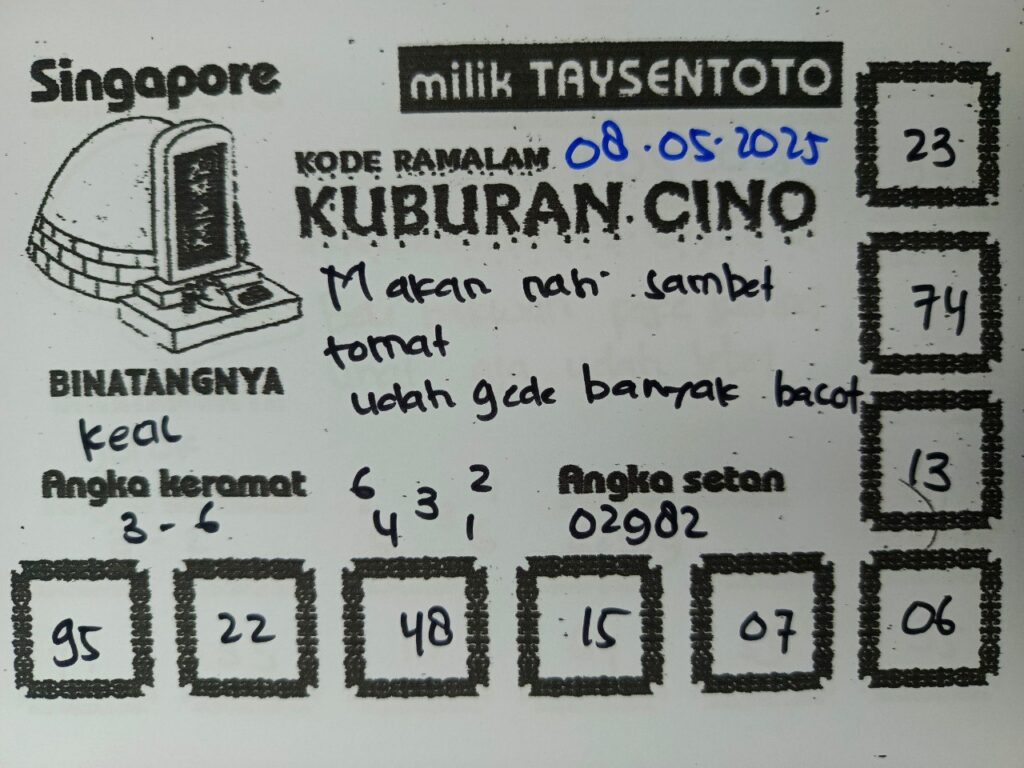 Singapore
milik TAYSENTOTO
KODE RAMALAM 08.05.2025
KUBURAN CINO
Makan nati sambet
tomat
udah gede banyak bacot
BINATANGNYA
Keal
Angka keramat
3 - 6
6 3 2
4 1
Angka setan
02982
23
74
13
95 22 48 15 07 06